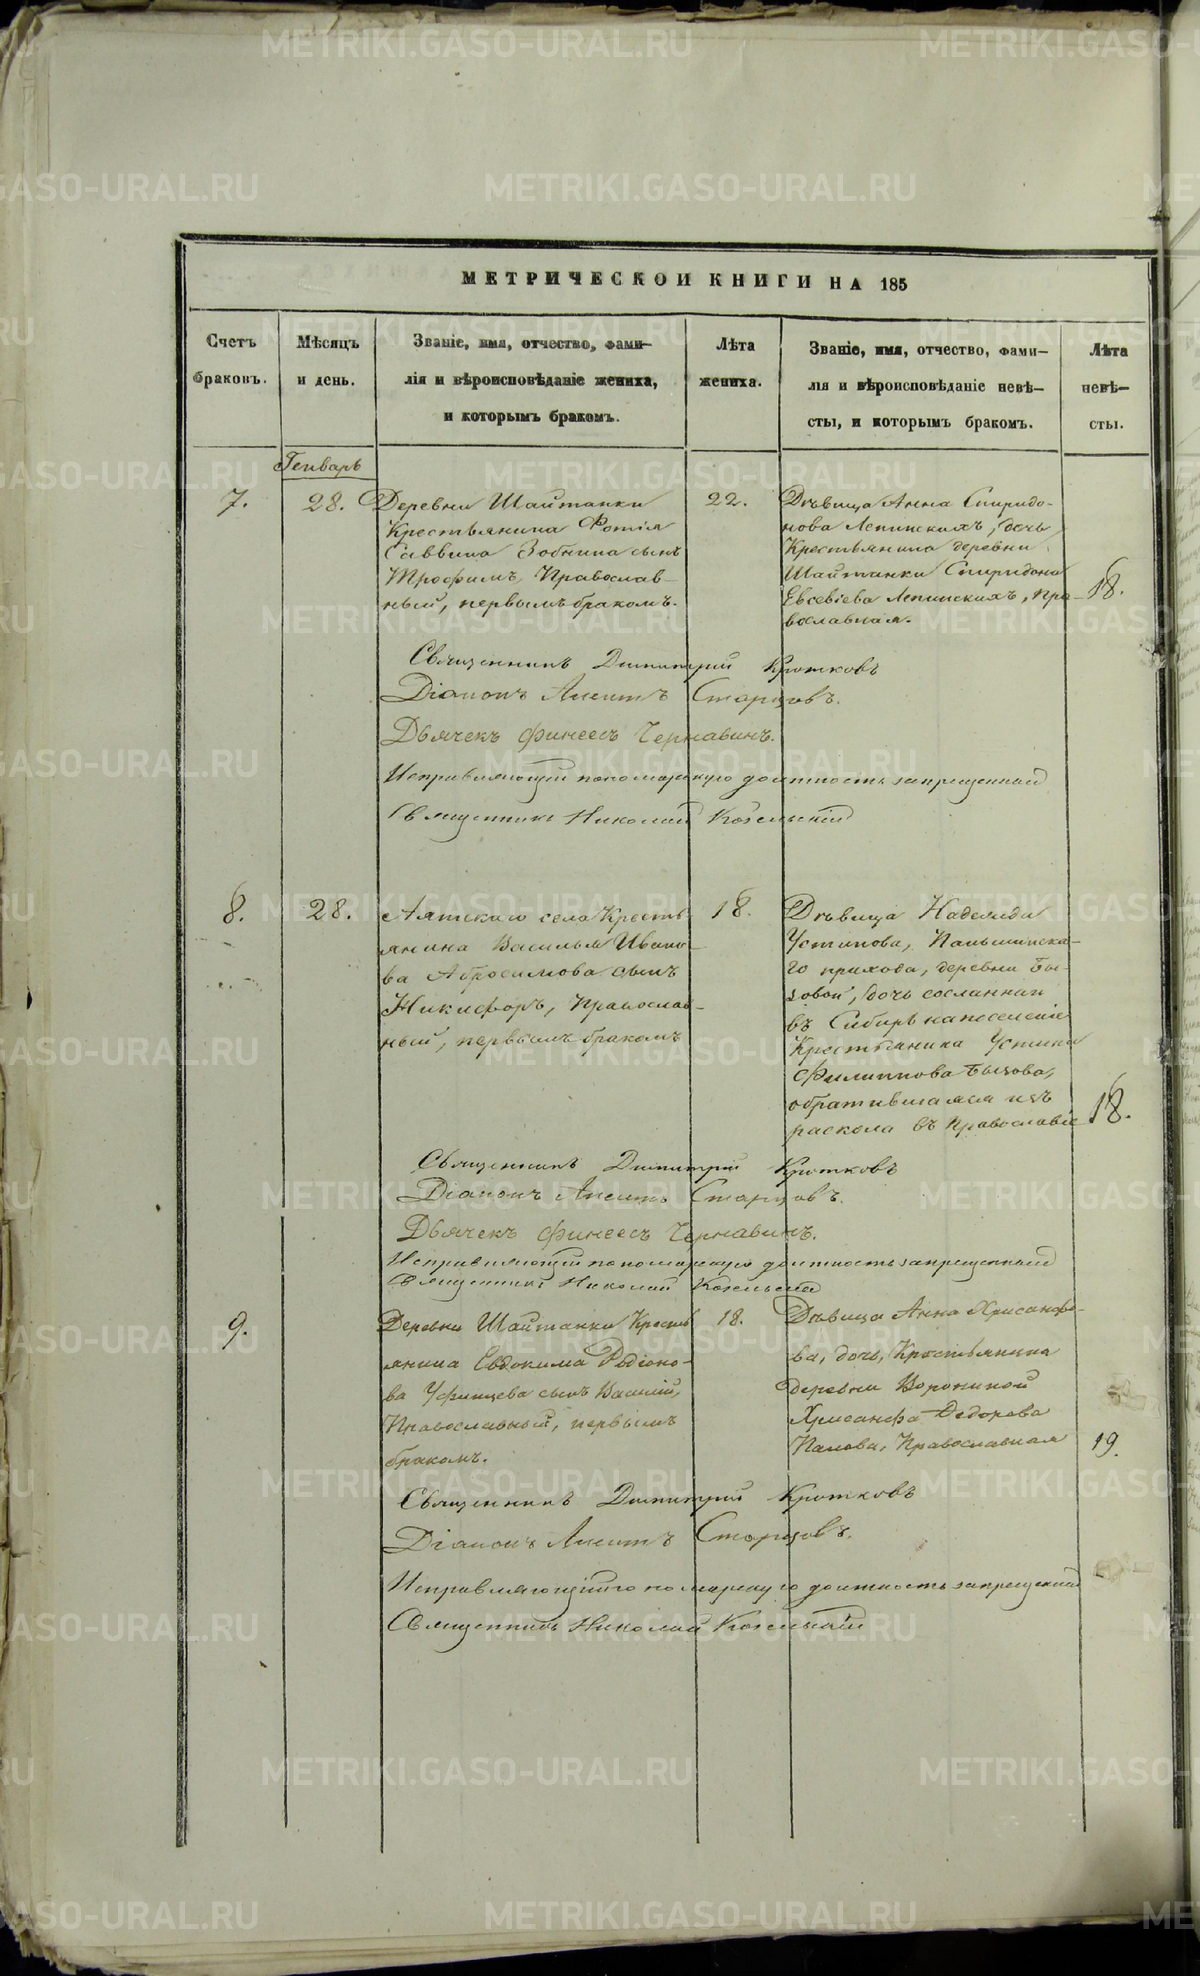 МЕТРИЧЕСКОЙ КНИГИ НА 185
Счетъ
браковъ.
Мѣсяцъ
и день.
Званіе, имя, отчество, фами-
лія и вѣроисповѣданіе жениха,
и которымъ бракомъ.
Лѣта
жениха.
Званіе, имя, отчество, фами-
лія и вѣроисповѣданіе невѣ-
сты, и которымъ бракомъ.
Лѣта
невѣ-
сты.
Генварь
7.
28.
Деревни Шайтанки
Крестьянина Фотія
Саввина Зобнина сынъ
Трофимъ, Православ-
ный, первымъ бракомъ.
22.
Дѣвица Анна Спиридо-
нова Лепинскихъ, дочь
Крестьянина деревни
Шайтанки Спиридона
Евсевіева Лепинскихъ, Пра-
вославная.
18.
Священникъ Димитрій Кротковъ
Діаконъ Старцовъ.
Дьячекъ Финеесъ Чернавинъ.
Исправляющій пономарскую должность запрещенный
Священникъ Николай Козельскій
8.
28.
Аятскаго села Кресть-
янина Василья Ивано-
ва Абросимова сынъ
Никифоръ, Православ-
ный, первымъ бракомъ
18.
Дѣвица Надежда
Устинова, Паньшинска-
го прихода, деревни Бы-
зовой, дочь сосланнаго
въ Сибирь на поселеніе
Крестьянина Устина
Филиппова Бызова,
обратившаяся изъ
раскола въ Православіе
18.
Священникъ Димитрій Кротковъ
Діаконъ Старцовъ.
Дьячекъ Финеесъ Чернавинъ.
Исправляющій пономарскую должность запрещенный
Священникъ Николай Козельскій
9.
Деревни Шайтанки Кресть-
янина Евдокима Родіоно-
ва Уфинцева сынъ Василій,
Православный, первымъ
бракомъ.
18.
Дѣвица Анна Хрисанфо-
ва, дочь, Крестьянина
деревни Ворониной
Хрисанфа Федорова
Панова, Православная
19.
Священникъ Димитрій Кротковъ
Діаконъ Старцовъ.
Исправляющій пономарскую должность запрещенный
Священникъ Николай Козельскій
METRIKI.GASO-URAL.RU